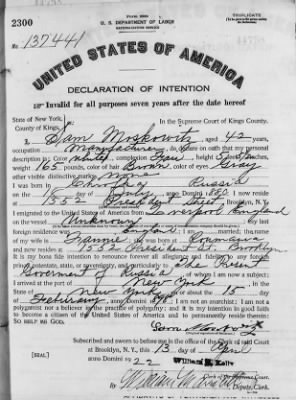 2300
U. S. DEPARTMENT OF LABOR
NATURALIZATION SERVICE
DUPLICATE
No. 137441
UNITED STATES OF AMERICA
DECLARATION OF INTENTION
Invalid for all purposes seven years after the date hereof
State of New York,
County of Kings,
In the Supreme Court of Kings County.
I, Sam Moskowitz, aged 42 years,
occupation Manufacturer, do on oath that my personal
description is: Color white, complexion Fair, height 5 feet inches,
weight 165 pounds, color of hair Brown, color of eyes Gray
other visible distinctive marks None
I was born in Russia
on the day of, anno Domini 1880; I now reside
at 1352 President Street, Brooklyn, N.Y.
I emigrated to the United States of America from Liverpool England
on the vessel Unknown; my last
foreign residence was England; I am married; the name
of my wife is Fannie; she was born in Roumania
and now resides at 1352 President St. Brooklyn
It is my bona fide intention to renounce forever all allegiance and fidelity to any foreign
prince, potentate, state, or sovereignty, and particularly to The Present
Government of Russia, of whom I am now a subject;
I arrived at the port of New York, in the
State of New York, on or about the 15 day
of February, anno Domini; I am not an anarchist; I am not a
polygamist nor a believer in the practice of polygamy; and it is my intention in good faith
to become a citizen of the United States of America and to permanently reside therein:
SO HELP ME GOD.
Sam Moskowitz
Subscribed and sworn to before me in the office of the Clerk of said Court
at Brooklyn, N.Y., this 13 day of April
anno Domini 1922
[SEAL]
William E. Kelly
Clerk of the Supreme Court.
By William, Deputy Clerk.